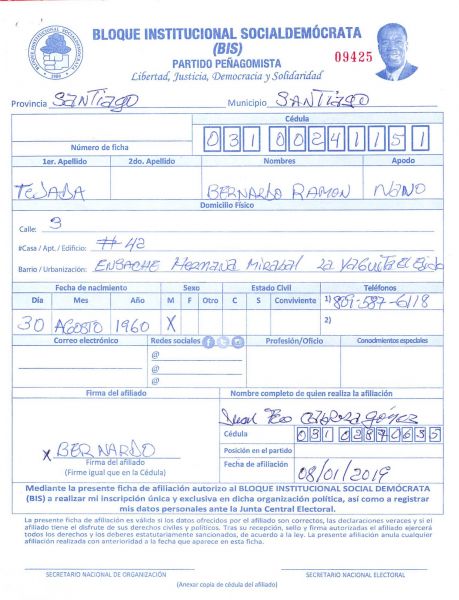 BLOQUE INSTITUCIONAL SOCIALDEMÓCRATA
(BIS)
PARTIDO PEÑAGOMISTA
Libertad, Justicia, Democracia y Solidaridad
09425
Provincia SANTIAGO Municipio SANTIAGO
Cédula
Número de ficha 031 0024115 1
1er. Apellido 2do. Apellido Nombres Apodo
TEJADA BERNARDO RAMON NANO
Domicilio Físico
Calle: 9
#Casa / Apt. / Edificio: # 42
Barrio / Urbanización: ENSACHE Hermana Mirabal La Yaguita El Ejido
Fecha de nacimiento Sexo Estado Civil Teléfonos
Día Mes Año M F Otro C S Conviviente 1) 809-587-6118
30 AGOSTO 1960 X 2)
Correo electrónico Redes sociales Profesión/Oficio Conocimientos especiales
@
@
@
Firma del afiliado Nombre completo de quien realiza la afiliación
Juan Cabrera Gómez
Cédula 031 0287063 5
X BERNARDO
Posición en el partido
Firma del afiliado
(Firme igual que en la Cédula)
Fecha de afiliación 08/01/2019
Mediante la presente ficha de afiliación autorizo al BLOQUE INSTITUCIONAL SOCIAL DEMÓCRATA
(BIS) a realizar mi inscripción única y exclusiva en dicha organización política, así como a registrar
mis datos personales ante la Junta Central Electoral.
La presente ficha de afiliación es válida si los datos ofrecidos por el afiliado son correctos, las declaraciones veraces y si el
afiliado tiene el disfrute de sus derechos civiles y políticos. Tras su recepción, sello y firma autorizadas el afiliado ejercerá
todos los derechos y los deberes estatutariamente sancionados, de acuerdo a la ley. La presente afiliación anula cualquier
afiliación realizada con anterioridad a la fecha que aparece en esta ficha.
SECRETARIO NACIONAL DE ORGANIZACIÓN SECRETARIO NACIONAL ELECTORAL
(Anexar copia de cédula del afiliado)